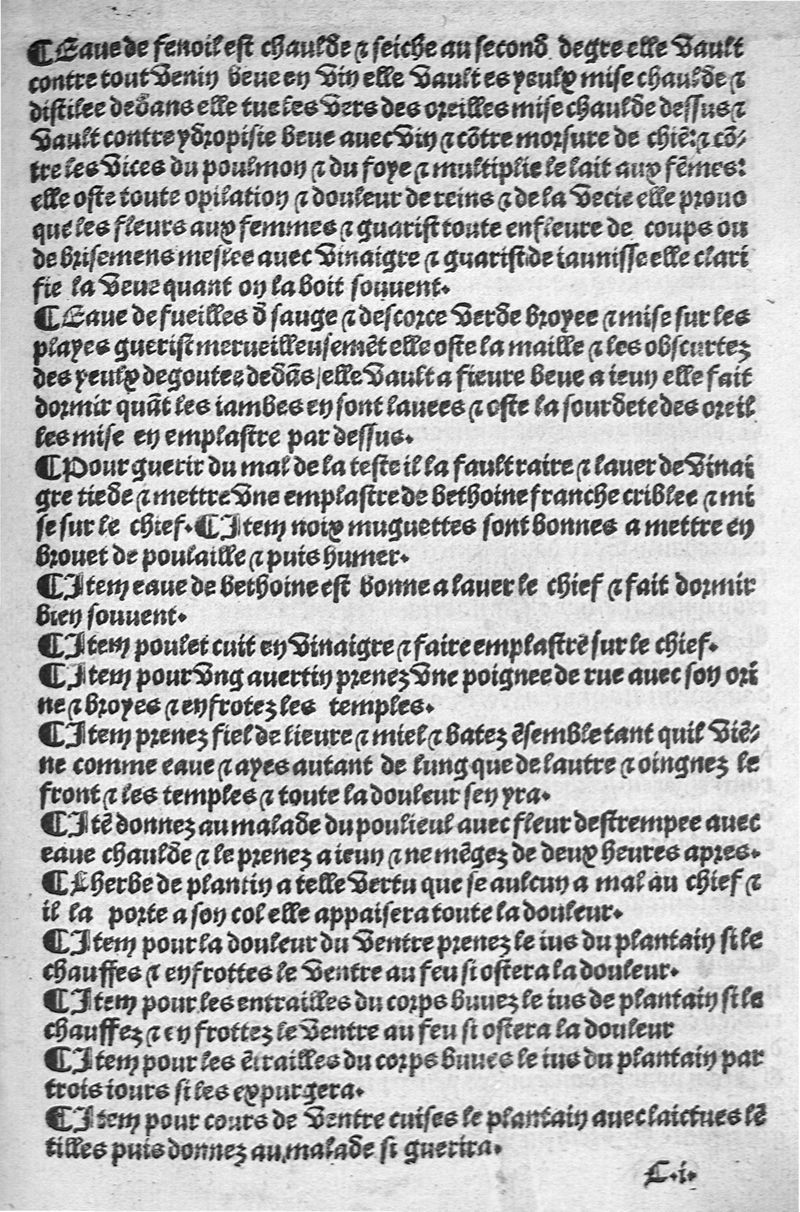 ¶Eaue de fenoil est chaulde ⁊ seiche au seconđ degre elle vault
contre tout venin beue en vin elle vault es yeulx mise chaulde ⁊
distilee dedans elle tue les vers des oreilles mise chaulde dessus ⁊
vault contre ydropisie beue auec vin ⁊ cõtre morsure de chiẽ: ⁊ cõ-
tre les vices du poulmon ⁊ du foye ⁊ multiplie le lait aux fẽmes:
elle oste toute opilation ⁊ douleur de reins ⁊ de la vecie elle prouo
que les fleurs aux femmes ⁊ guarist toute enfleure de coups ou
de brisemens meslee auec vinaigre ⁊ guarist de iaunisse elle clari
fie la veue quant on la boit souuent.
¶Eaue de fueilles đ sauge ⁊ descorce verde broyee ⁊ mise sur les
playes guerist merueilleusemẽt elle oste la maille ⁊ les obscurtez
des yeulx degoutee dedãs/elle vault a fieure beue a ieun elle fait
dormir quãt les iambes en sont lauees ⁊ oste la sourdete des oreil
les mise en emplastre par dessus.
¶Pour guerir du mal de la teste il la fault raire ⁊ lauer de vinai
gre tiede ⁊ mettre vne emplastre de bethoine franche criblee ⁊ mi
se sur le chief. ¶Item noix muguettes sont bonnes a mettre en
brouet de poulaille ⁊ puis humer.
¶Item eaue de bethoine est bonne a lauer le chief ⁊ fait dormir
bien souuent.
¶Item poulet cuit en vinaigre ⁊ faire emplastre sur le chief.
¶Item pour vng auertin prenez vne poignee de rue auec son ori
ne ⁊ broyes ⁊ en frotez les temples.
¶Item prenez fiel de lieure ⁊ miel ⁊ batez ẽsemble tant quil viẽ-
ne comme eaue ⁊ ayes autant de lung que de lautre ⁊ oingnez le
front ⁊ les temples ⁊ toute la douleur sen yra.
¶Itẽ donnez au malade du poulieul auec fleur destrempee auec
eaue chaulde ⁊ le prenez a ieun ⁊ ne mẽgez de deux heures apres.
¶Lherbe de plantin a telle vertu que se aulcun a mal au chief ⁊
il la porte a son col elle appaisera toute la douleur.
¶Item pour la douleur du ventre prenez le ius du plantain si le
chauffes ⁊ en frottes le ventre au feu si ostera la douleur.
¶Item pour les entrailles du corps buuez le ius de plantain si le
chauffez ⁊ en frottez le ventre au feu si ostera la douleur
¶Item pour les ẽtrailles du corps buues le ius du plantain par
trois iours si les expurgera.
¶Item pour cours de ventre cuises le plantain auec laictues lẽ
tilles puis donnez au malade si guerira.
C.i.